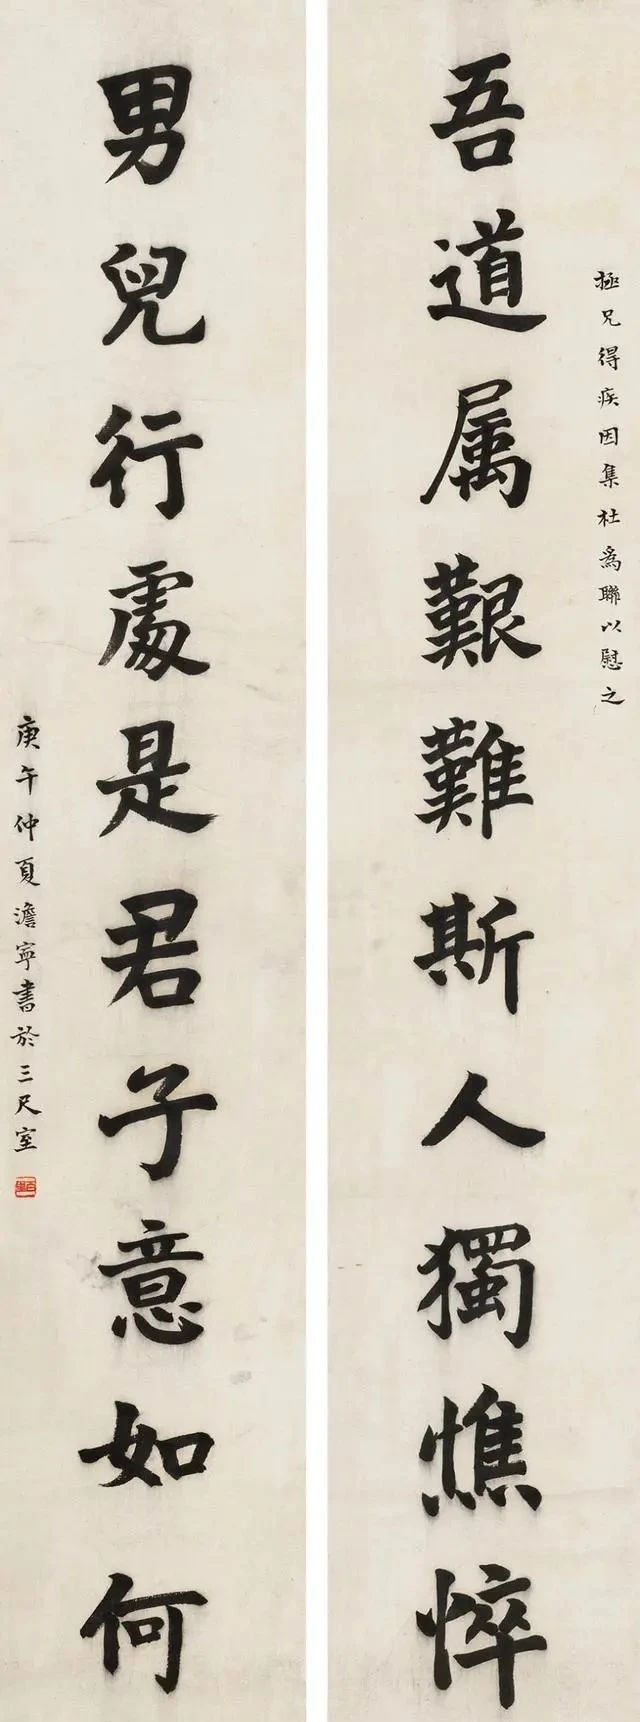 極兄得疾因集杜為聯以慰之
吾道属艱難斯人獨憔悴
男兒行處是君子意如何
庚午仲夏澹寧書於三尺室